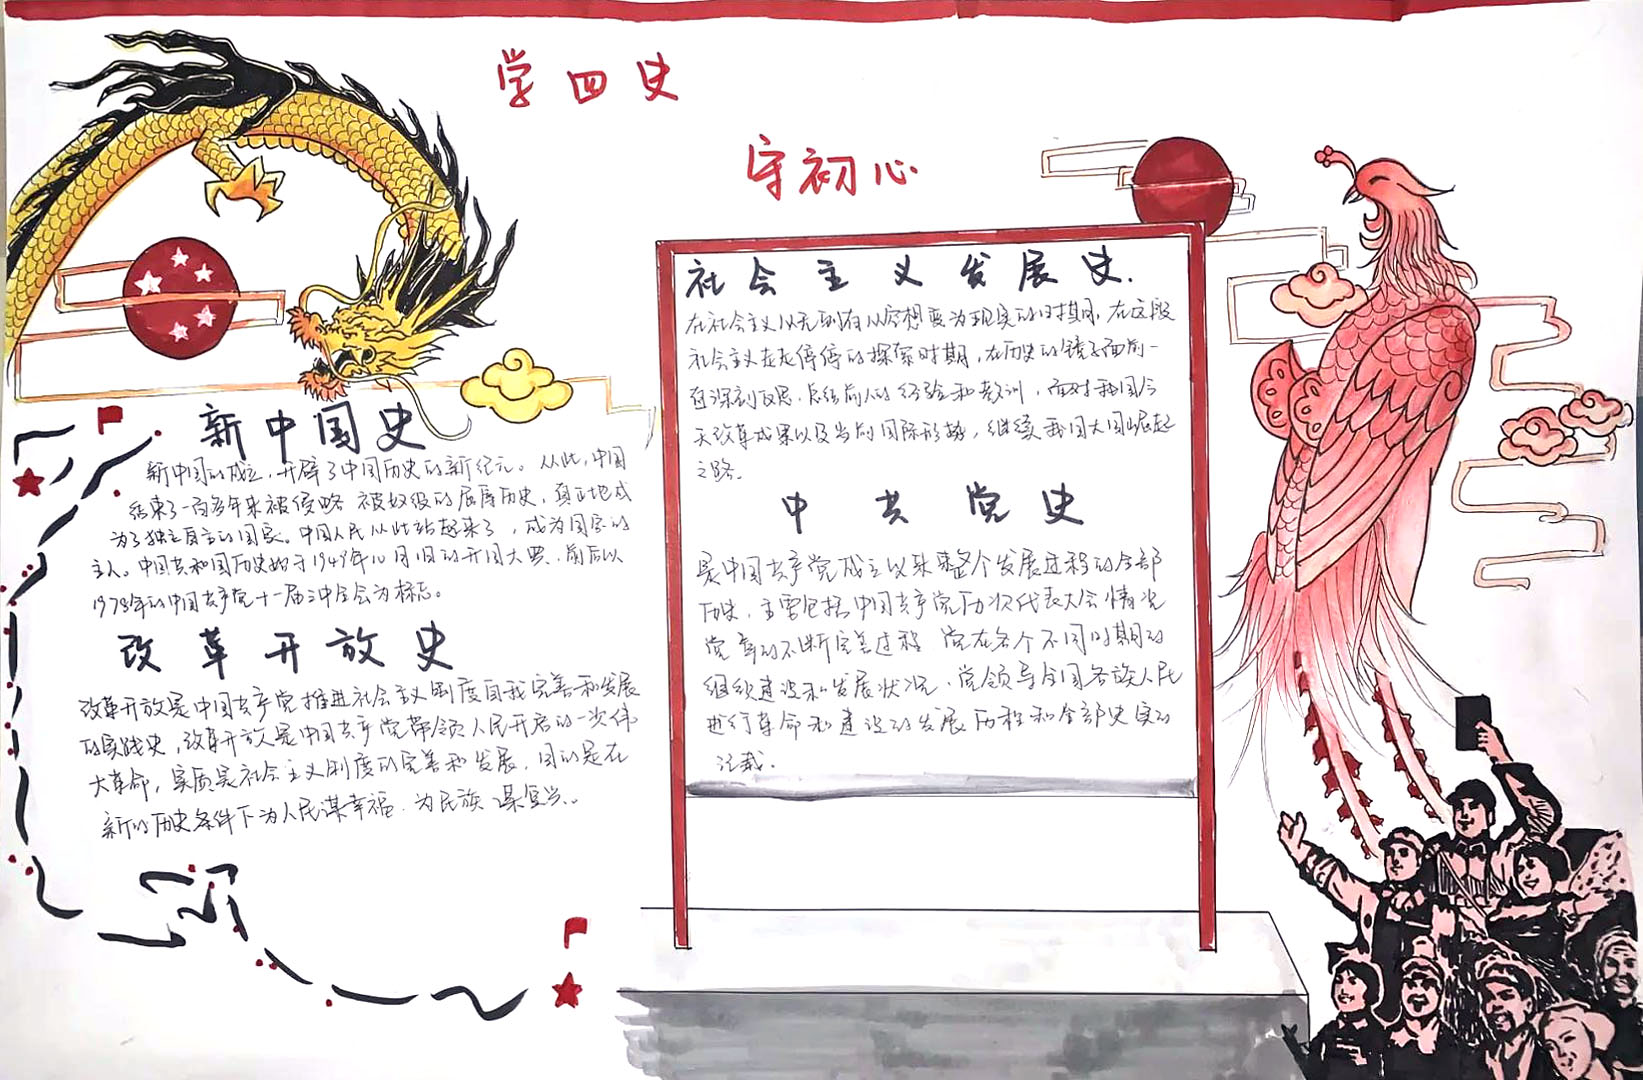 学四史
守初心
新中国史
新中国的成立,开辟了中国历史的新纪元。从此,中国
结束了一百多年来被侵略 被奴役的屈辱历史,真正地成
为了独立自主的国家。中国人民从此站起来了,成为国家的
主人。中国共和国历史始于1949年10月1日的开国大典,前后以
1978年的中国共产党十一届三中全会为标志。
改革开放史
改革开放是中国共产党推进社会主义制度自我完善和发展
的实践史,改革开放是中国共产党带领人民开启的一次伟
大革命,实质是社会主义制度的完善和发展,目的是在
新的历史条件下为人民谋幸福.为民族谋复兴。
社会主义发展史.
在社会主义从无到有从空想变为现实的时期,在这段
社会主义走走停停的探索时期,在历史的镜子面前一
直深刻反思,总结前人的经验和教训,面对我国今
天改革成果以及当前国际形势,继续我国大国崛起
之路.
中共党史
是中国共产党成立以来整个发展过程的全部
历史,主要包括中国共产党历次代表大会情况
党章的不断完善过程 党在各个不同时期的
组织建设和发展状况,党领导全国各族人民
进行革命和建设的发展历程和全部史实的
记载.